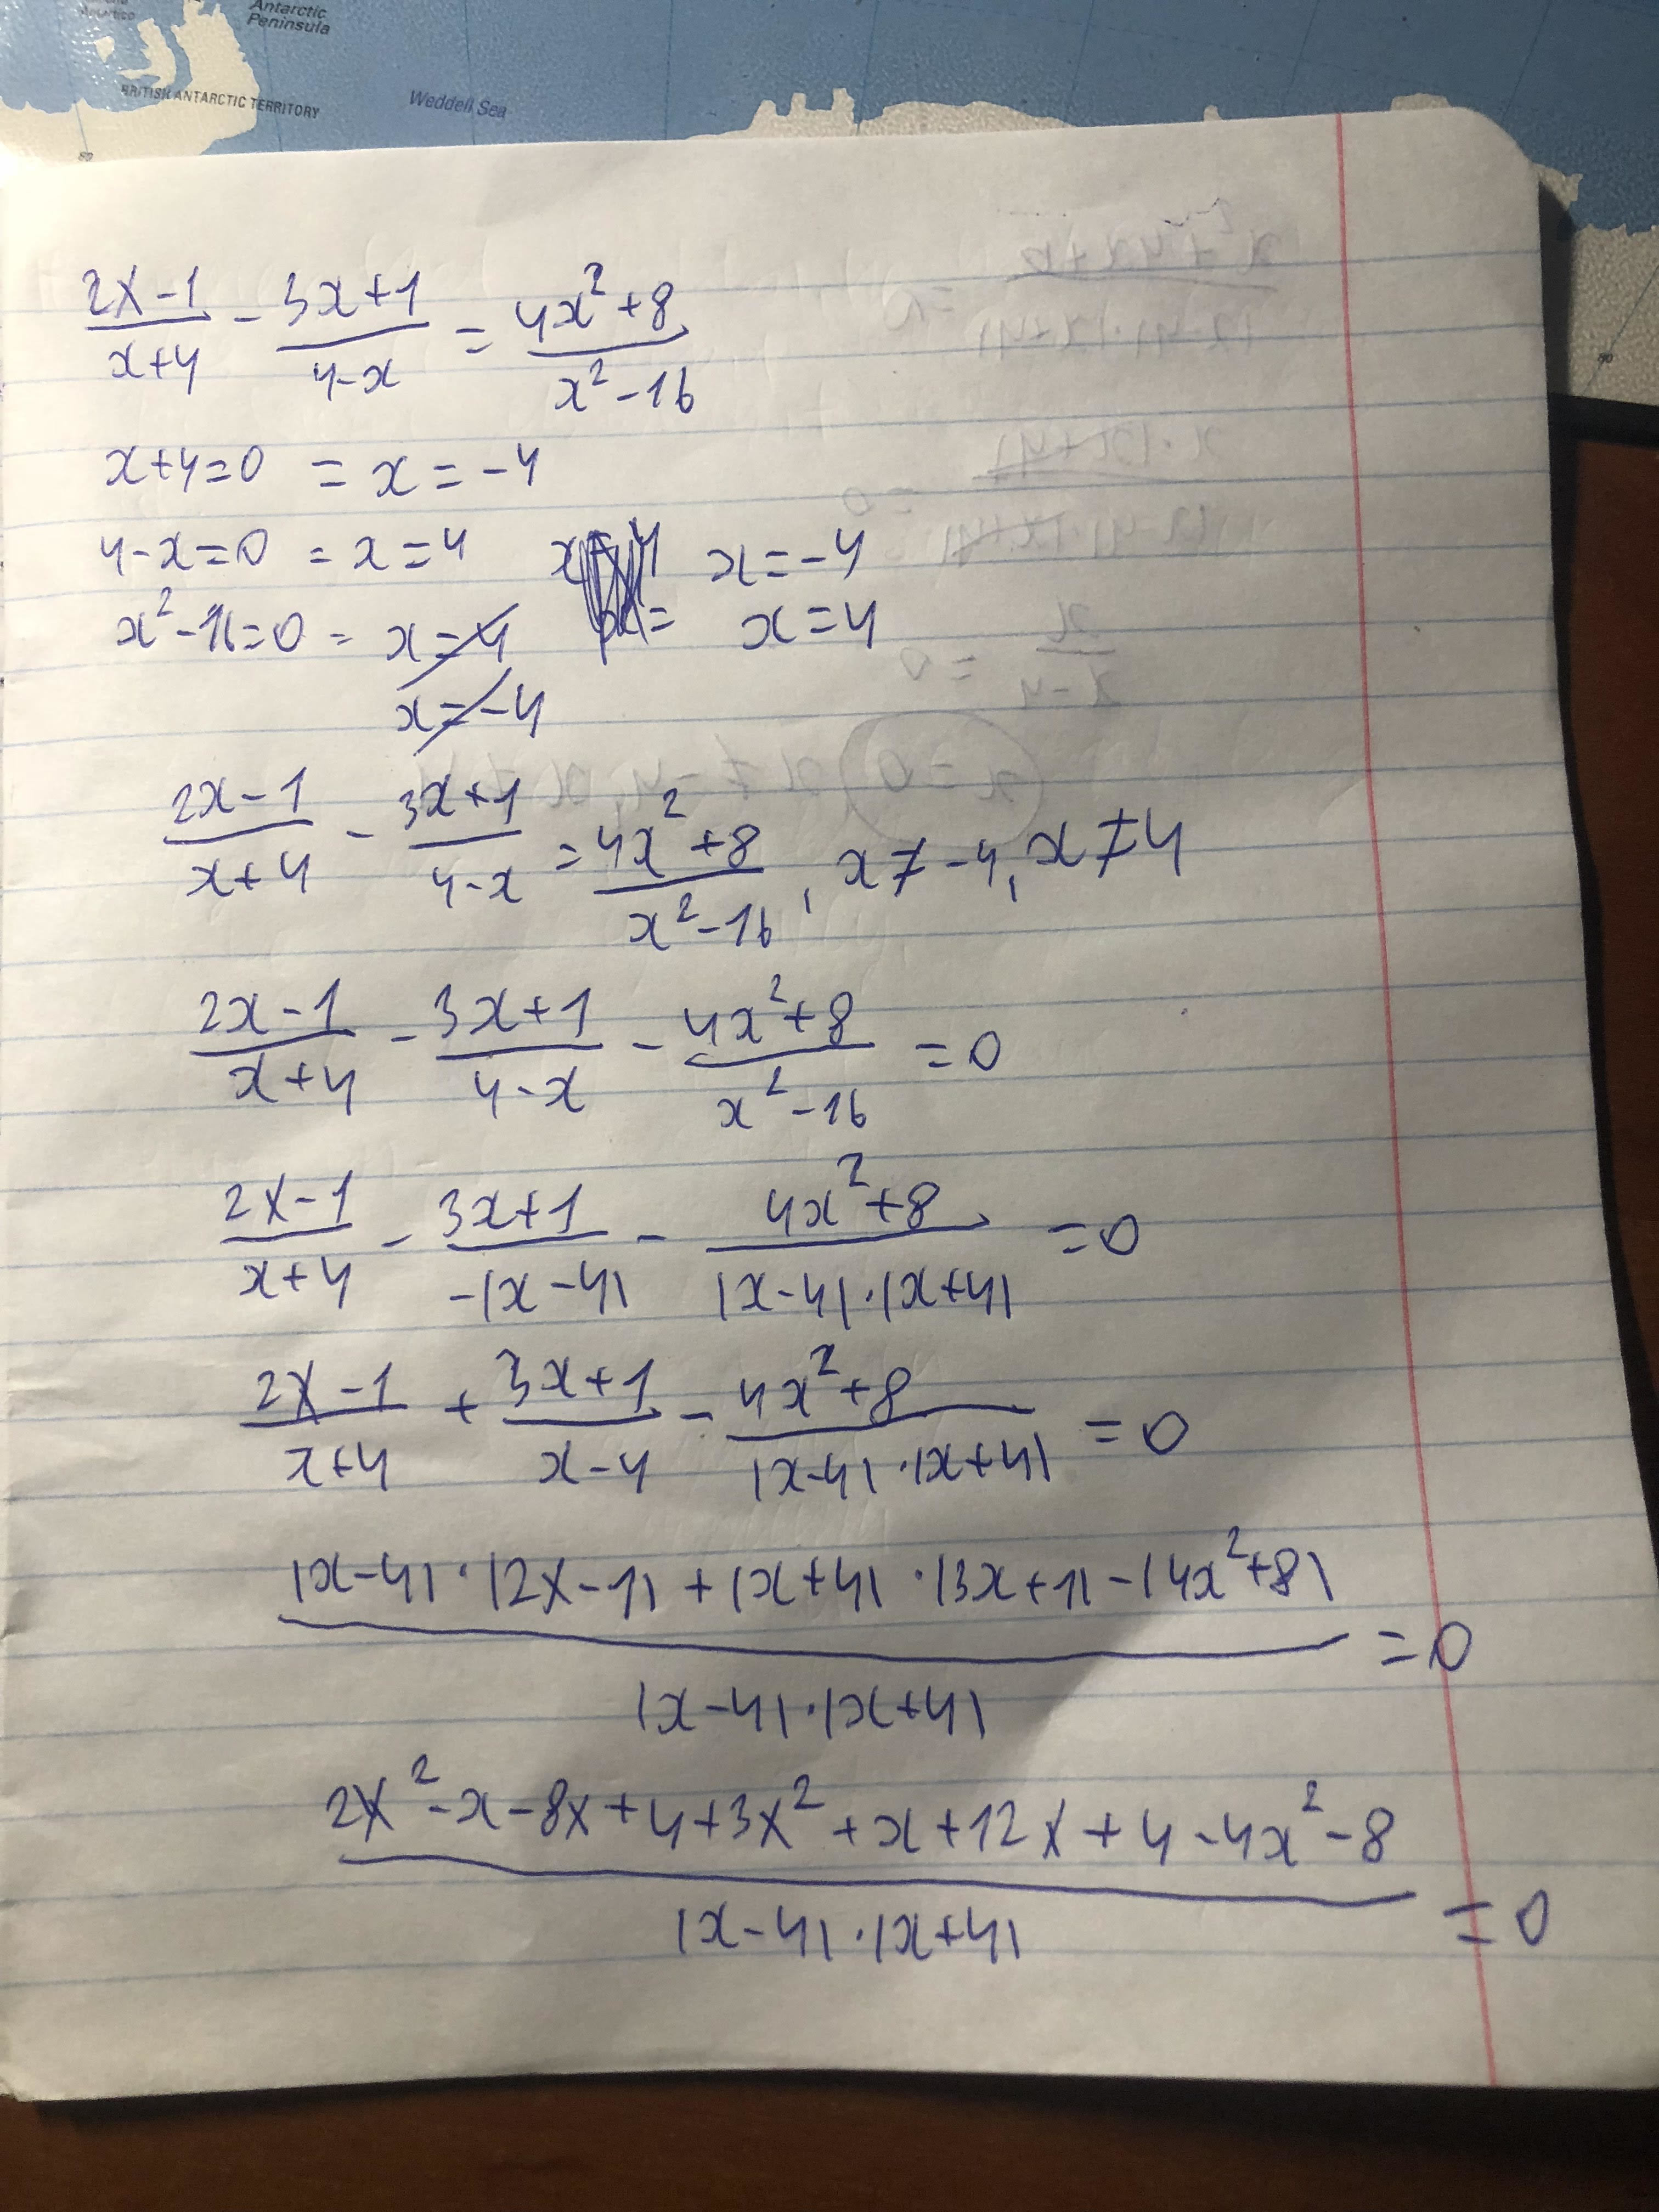 Antarctic
Peninsula
BRITISH ANTARCTIC TERRITORY
Weddell Sea
80
80
(2x-1)/(x+4) - (3x+1)/(4-x) = (4x²+8)/(x²-16)
x+4=0 = x=-4
4-x=0 = x=4 x=-4
x²-16=0 = x=4 x=4
x=-4
(2x-1)/(x+4) - (3x+1)/(4-x) = (4x²+8)/(x²-16), x≠-4, x≠4
(2x-1)/(x+4) - (3x+1)/(4-x) - (4x²+8)/(x²-16) = 0
(2x-1)/(x+4) - (3x+1)/(-|x-4|) - (4x²+8)/(|x-4|·|x+4|) = 0
(2x-1)/(x+4) + (3x+1)/(x-4) - (4x²+8)/(|x-4|·|x+4|) = 0
|x-4|·|2x-1|+|x+4|·|3x+1|-|4x²+8|
=0
|x-4|·|x+4|
2x²-x-8x+4+3x²+x+12x+4-4x²-8
=0
|x-4|·|x+4|